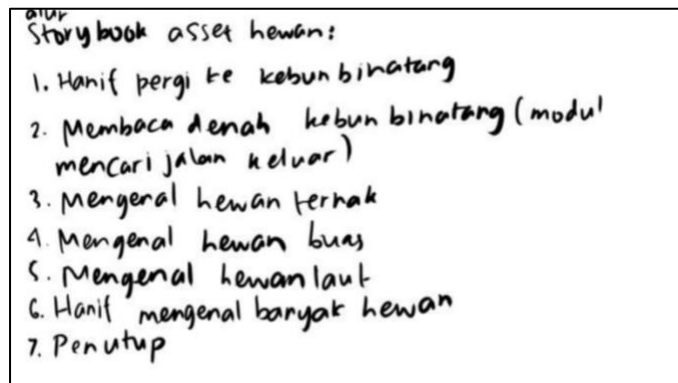 alur
Storybook asset hewan:
1. Hanif pergi ke kebun binatang
2. Membaca denah kebun binatang (modul
mencari jalan keluar)
3. Mengenal hewan ternak
4. Mengenal hewan buas
5. Mengenal hewan laut
6. Hanif mengenal banyak hewan
7. Penutup